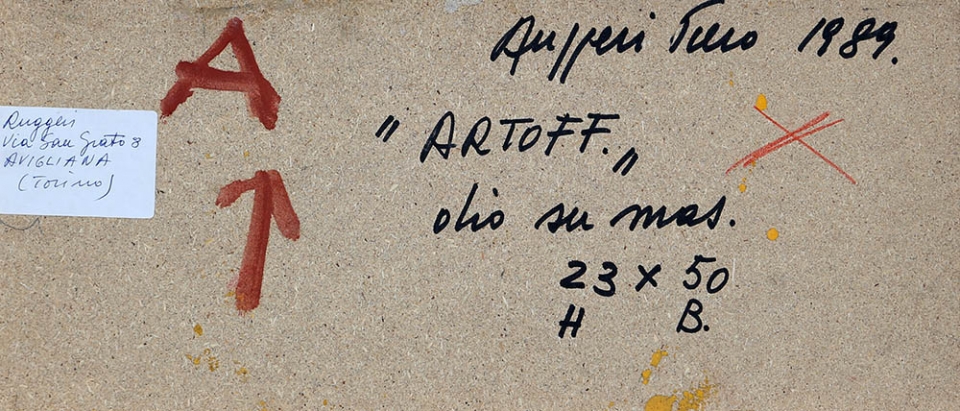 A
Ruggeri Piero 1989.
Ruggeri
Via San Grato 8
AVIGLIANA
(Torino)
" ARTOFF. "
olio su mas.
23 x 50
H B.